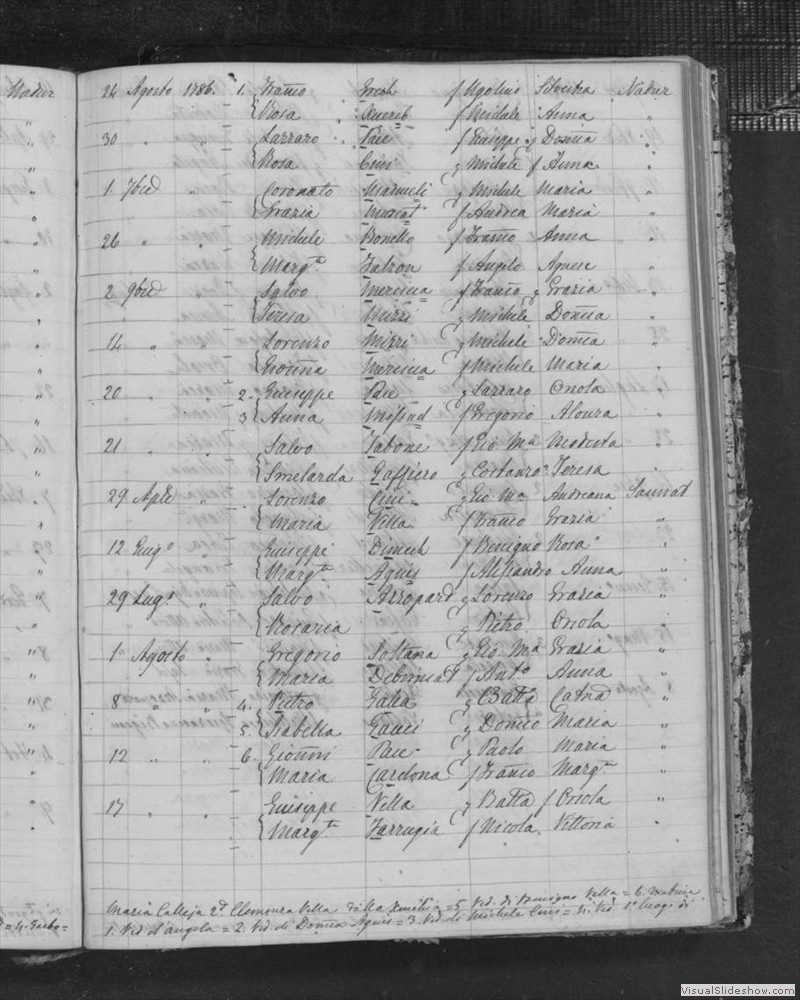 Nadur 24 Agosto 1786. 1. Franco Grech f Ugolino Silvestra Nadur
Rosa Xuerib f Michale Anna "
30 " " Lazzaro Pace f Giuseppe Domca "
Rosa Cini g Michele f Anna "
1. 7bre " Coronato Marmeli g Michele Maria "
Grazia Muscat f Andrea Maria "
26 " " Michele Bonello f Franco Anna "
Marg.ta Falzon f Angelo Agnese "
2 9bre " Salvo f Franco g Grazia "
Teresa Mizzi g Michele Domca "
14 " " Lorenzo Mizzi g Michele Domca "
Giovanna f Michele Maria "
20 " " 2. Giuseppe Pace g Lazzaro "
3 Anna Mifsud f Gregorio Aloura "
21 " " Salvo Tabone f Gio Ma Modesta "
Smelarda Gaffiero g Costanzo Teresa "
29 Aple " Lorenzo Cini g Gio. Ma Andreana Sannat
Maria Vella f Franco Grazia "
12 Giugo " Giuseppe Dimech f Benigno Rosa "
Marg.ta Agius f Alessandro Anna "
29 Lugo " Salvo Azzopard g Lorenzo Grazia "
Rosaria g Pietro "
1 Agosto " Gregorio Soltana g Gio Ma Grazia "
Maria f Anto Anna "
8 " " 4. Pietro Galea g Batta Catna "
5 Isabella Gauci g Domco Maria "
12 " " 6. Gionni Pace g Paolo Maria "
Maria Cardona f Franco Marg.ta "
17 " " Giuseppe Vella g Batta f "
Marg.ta Farrugia f Nicola Vittoria "
Maria Calleja 2. Vella = 5 Ved. di Benigno Vella = 6.
1. Ved. d'Angelo = 2. Ved. di Domca Agius = 3. Ved. di Michele Cini = 4. Ved.
VisualSlideshow.com